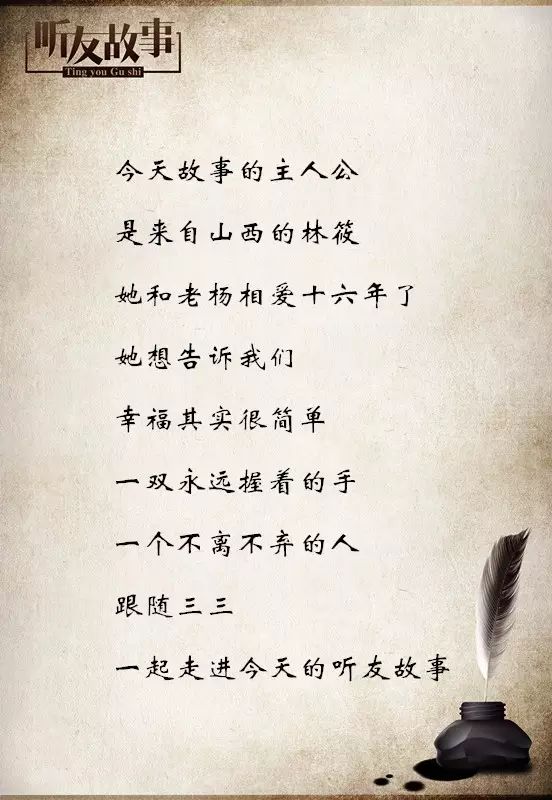 听友故事
Ting you Gu shi
今天故事的主人公
是来自山西的林筱
她和老杨相爱十六年了
她想告诉我们
幸福其实很简单
一双永远握着的手
一个不离不弃的人
跟随三三
一起走进今天的听友故事